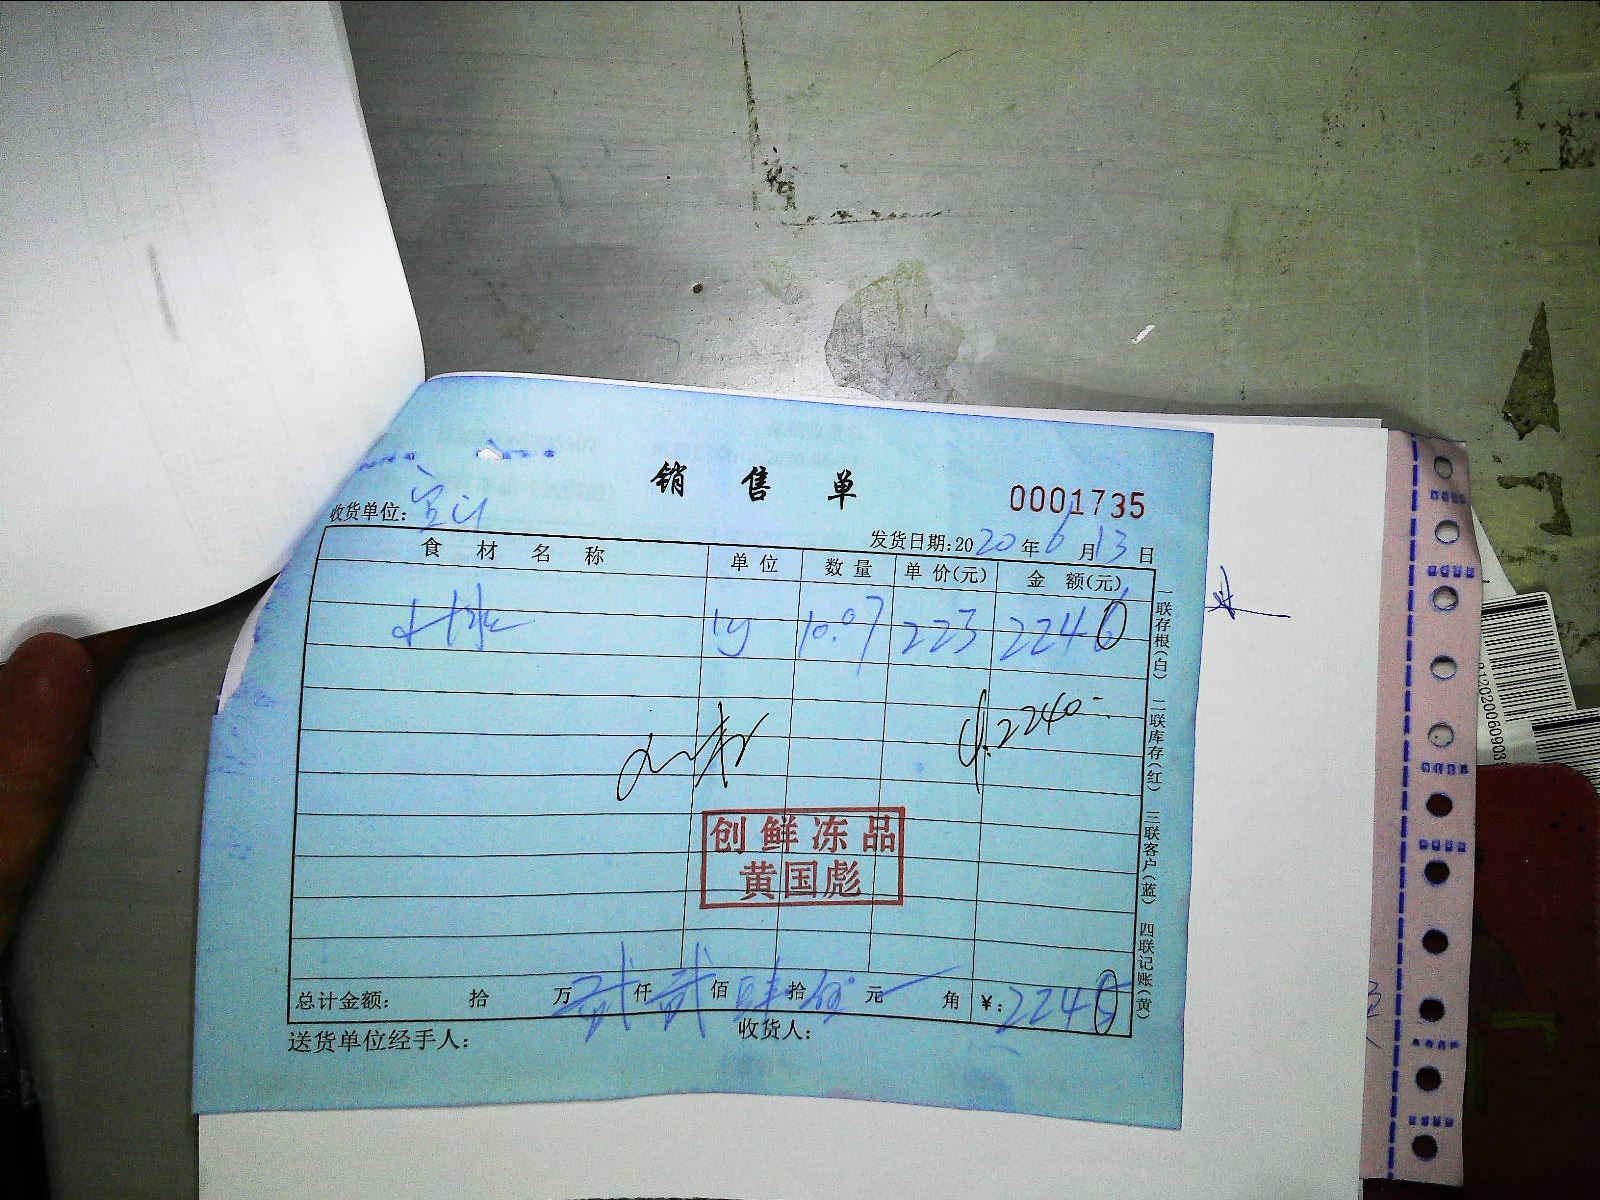 销售单
0001735
收货单位:
发货日期:2020年6月13日
食材名称 单位 数量 单价(元) 金额(元)
10.07 223 2240
¥2240-
创鲜冻品
黄国彪
总计金额: 拾 万 贰仟贰佰肆拾 元 角 ¥:2240
送货单位经手人: 收货人:
一联存根(白) 二联库存(红) 三联客户(蓝) 四联记账(黄)